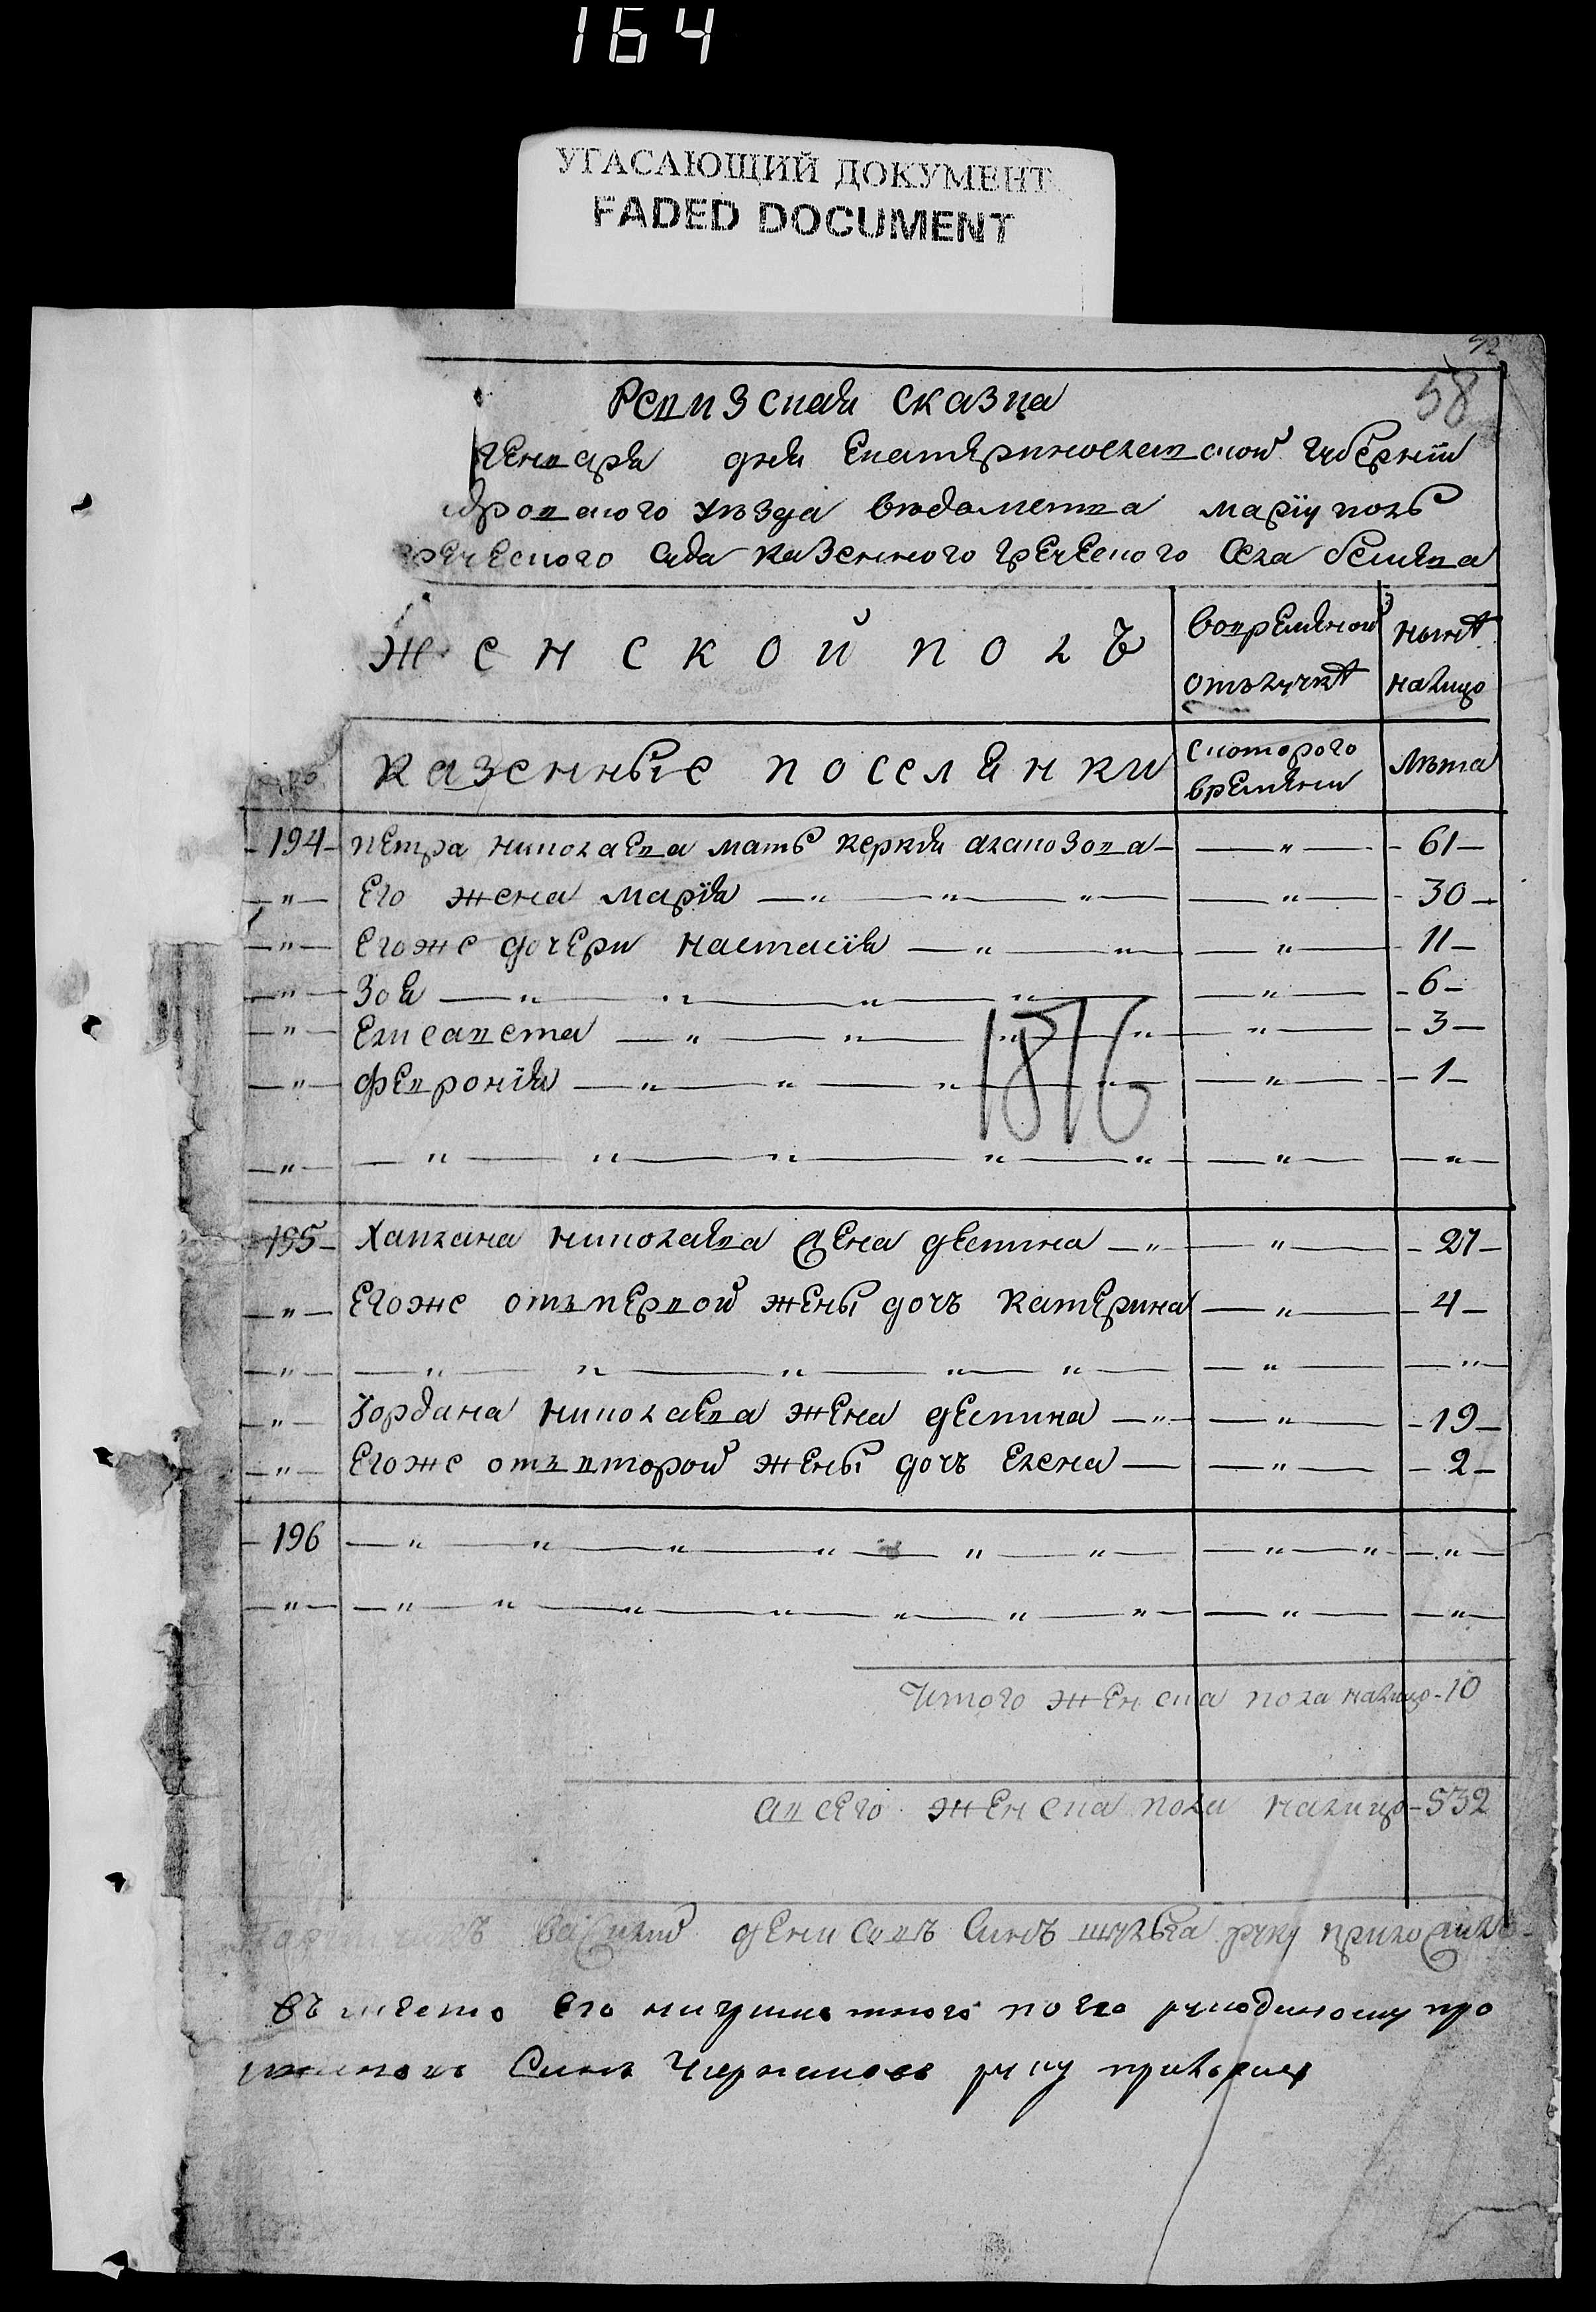 164
УГАСАЮЩИЙ ДОКУМЕНТ
FADED DOCUMENT
58
Ревизская сказка
генваря дня Екатеринославской губернїи
дровского уезда ведомства марїуполь
греческого суда казенного греческого села бешева
Женской полъ вовремяной отълучкѣ нынѣ налицо
казенные поселянки скоторого времяни лѣта
194 петра николаева мать керкїя агапозова — " — 61
" Его жена марїя — " — 30
" Егоже дочери настасїя — " — 11
" Зоя — " — 6
" Елисавета — " — 3
" февронїя — " — 1
1816
195 Хапхана николаева жена деспина — " — 27
" Егоже отъ первой жены дочь катерина — " — 4
" Їордана николаева жена деспина — " — 19
" Егоже отъ второй жены дочь Елена — " — 2
196 — " — " — "
Итого женска пола налицо 10
а всего женска пола налицо 532
василий денисовъ синъ руку приложилъ
въ место его по его
Синъ руку